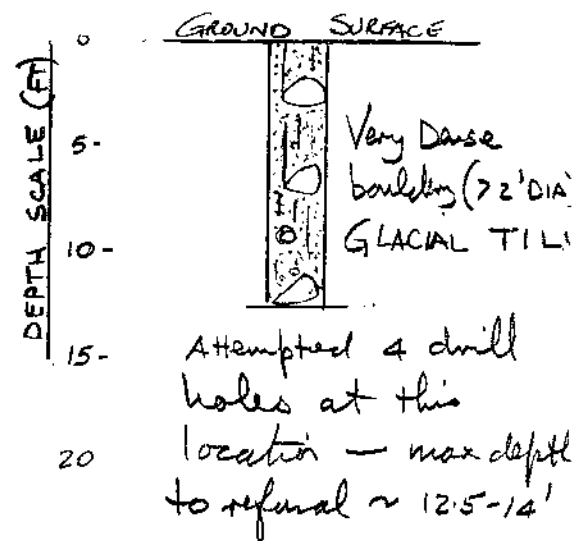 GROUND SURFACE
DEPTH SCALE (FT)
0
5-
10-
15-
20
Very Dense
bouldery (>2' DIA)
GLACIAL TILL
Attempted 4 drill
holes at this
location — max depth
to refusal ~ 12.5-14'